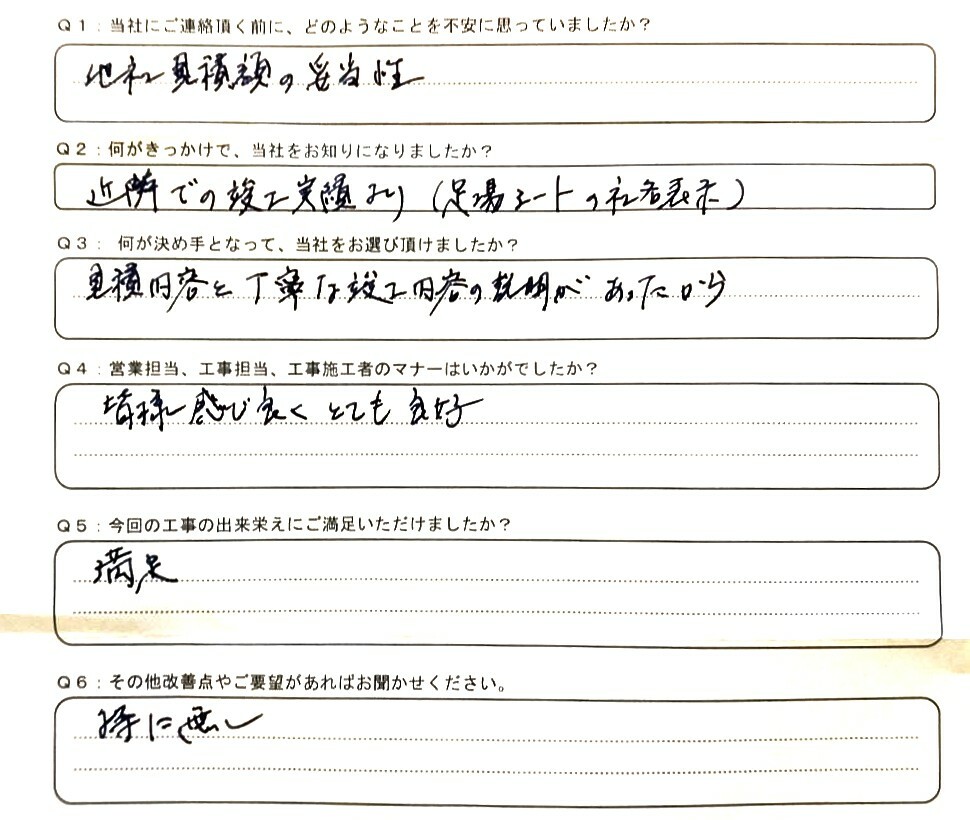 Q1：当社にご連絡頂く前に、どのようなことを不安に思っていましたか？
他社見積額の妥当性
Q2：何がきっかけで、当社をお知りになりましたか？
近隣での竣工実績より（足場シートの社名表示）
Q3： 何が決め手となって、当社をお選び頂けましたか？
見積内容と丁寧な竣工内容の説明があったから
Q4：営業担当、工事担当、工事施工者のマナーはいかがでしたか？
皆様感じ良くとても良好
Q5：今回の工事の出来栄えにご満足いただけましたか？
満足
Q6：その他改善点やご要望があればお聞かせください。
特に無し